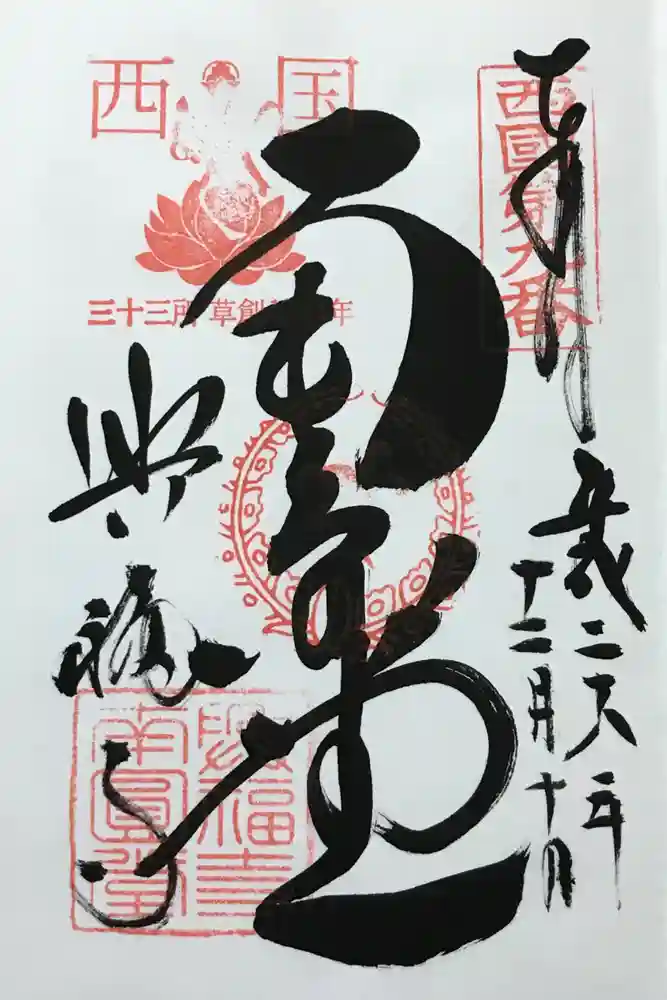 西国
三十三所 草創 年
西國第九番
奉拝
平成二 年
十二月十日
南円堂
興福寺
興福寺
南圓堂